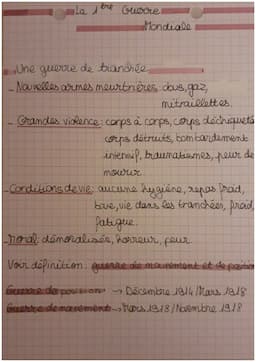 La 1ère Guerre
Mondiale
Une guerre de tranchée
- Nouvelles armes meurtrières: obus, gaz,
mitraillettes.
- Grandes violence: corps à corps, corps déchiquetés
corps détruits, bombardement
intensif, traumatismes, peur de
mourir.
- Conditions de vie: aucune hygiène, repas froid,
boue, vie dans les tranchées, froid,
fatigue.
- Moral: démoralisée, horreur, peur.
Voir définition: guerre de mouvement et de position
Guerre de position -> Décembre 1914/Mars 1918
Guerre de mouvement -> Mars 1918/Novembre 1918